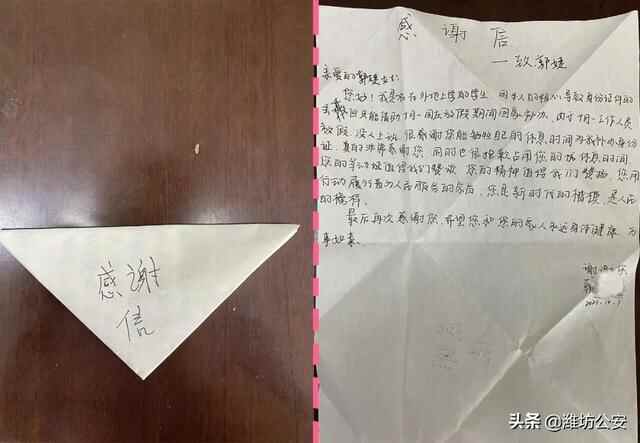 感谢
信
感 谢 信
—致郭婕
亲爱的郭婕女士:
您好!我是在外地上学的学生,因本人的粗心导致身份证件的
丢失,所以只能借助十一国庆放假期间回家补办,由于十一工作人员
放假,没人上班,很感谢您能牺牲自己的休息时间为我补办身份
证,真的非常感谢您,同时也很抱歉占用您的休息时间,
您的等功绩值得我们赞颂,您的精神值得我们赞扬,您用
行动履行着为人民服务的承诺,您是新时代的楷模,是人民
的榜样。
最后再次感谢您,希望您和您的家人永远身体健康,万
事如意。
头条 @潍坊公安